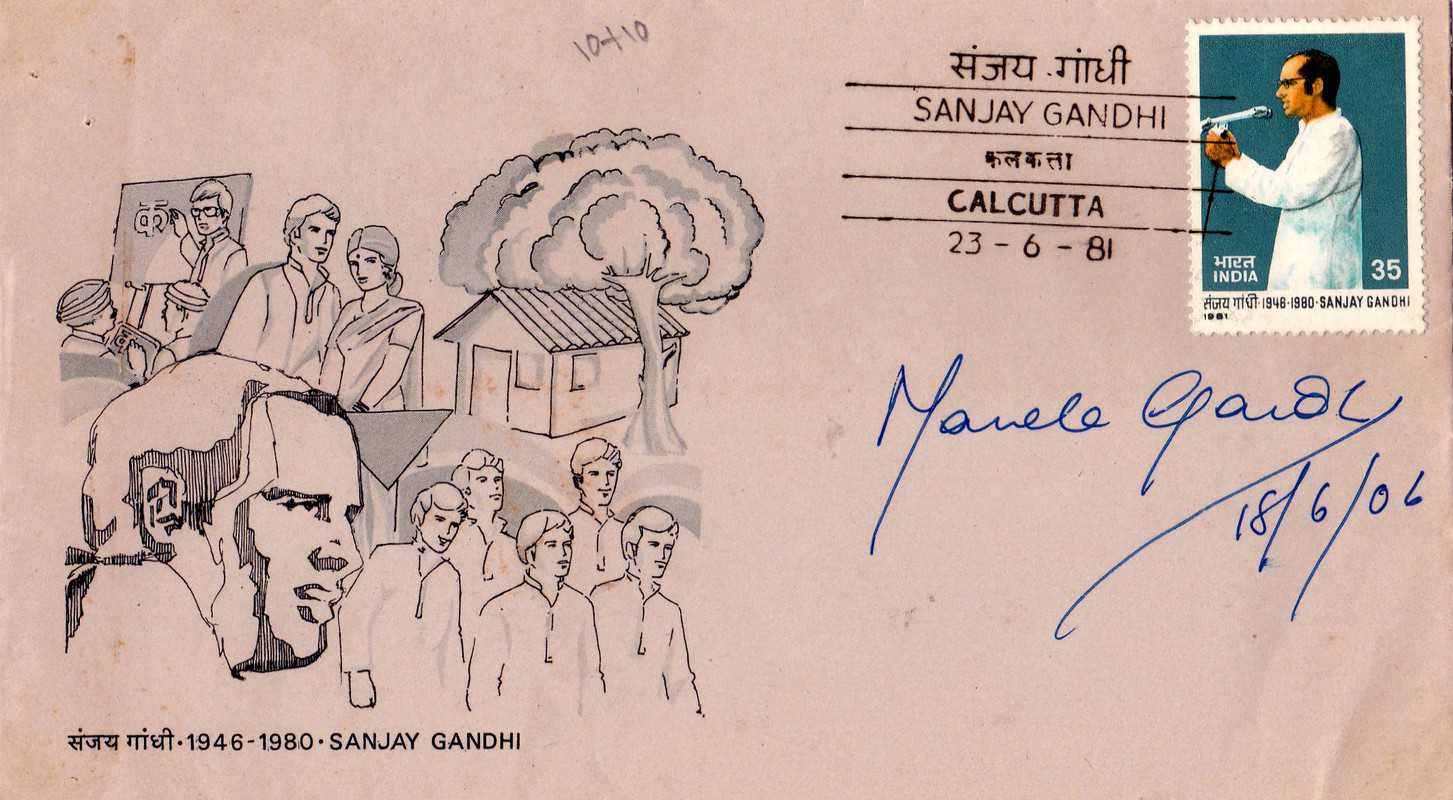 10+10
संजय गांधी
SANJAY GANDHI
कलकत्ता
CALCUTTA
23 - 6 - 81
भारत
INDIA
35
संजय गांधी·1946-1980·SANJAY GANDHI
1981
Maneka Gandhi
18/6/06
क
क
संजय गांधी·1946-1980·SANJAY GANDHI